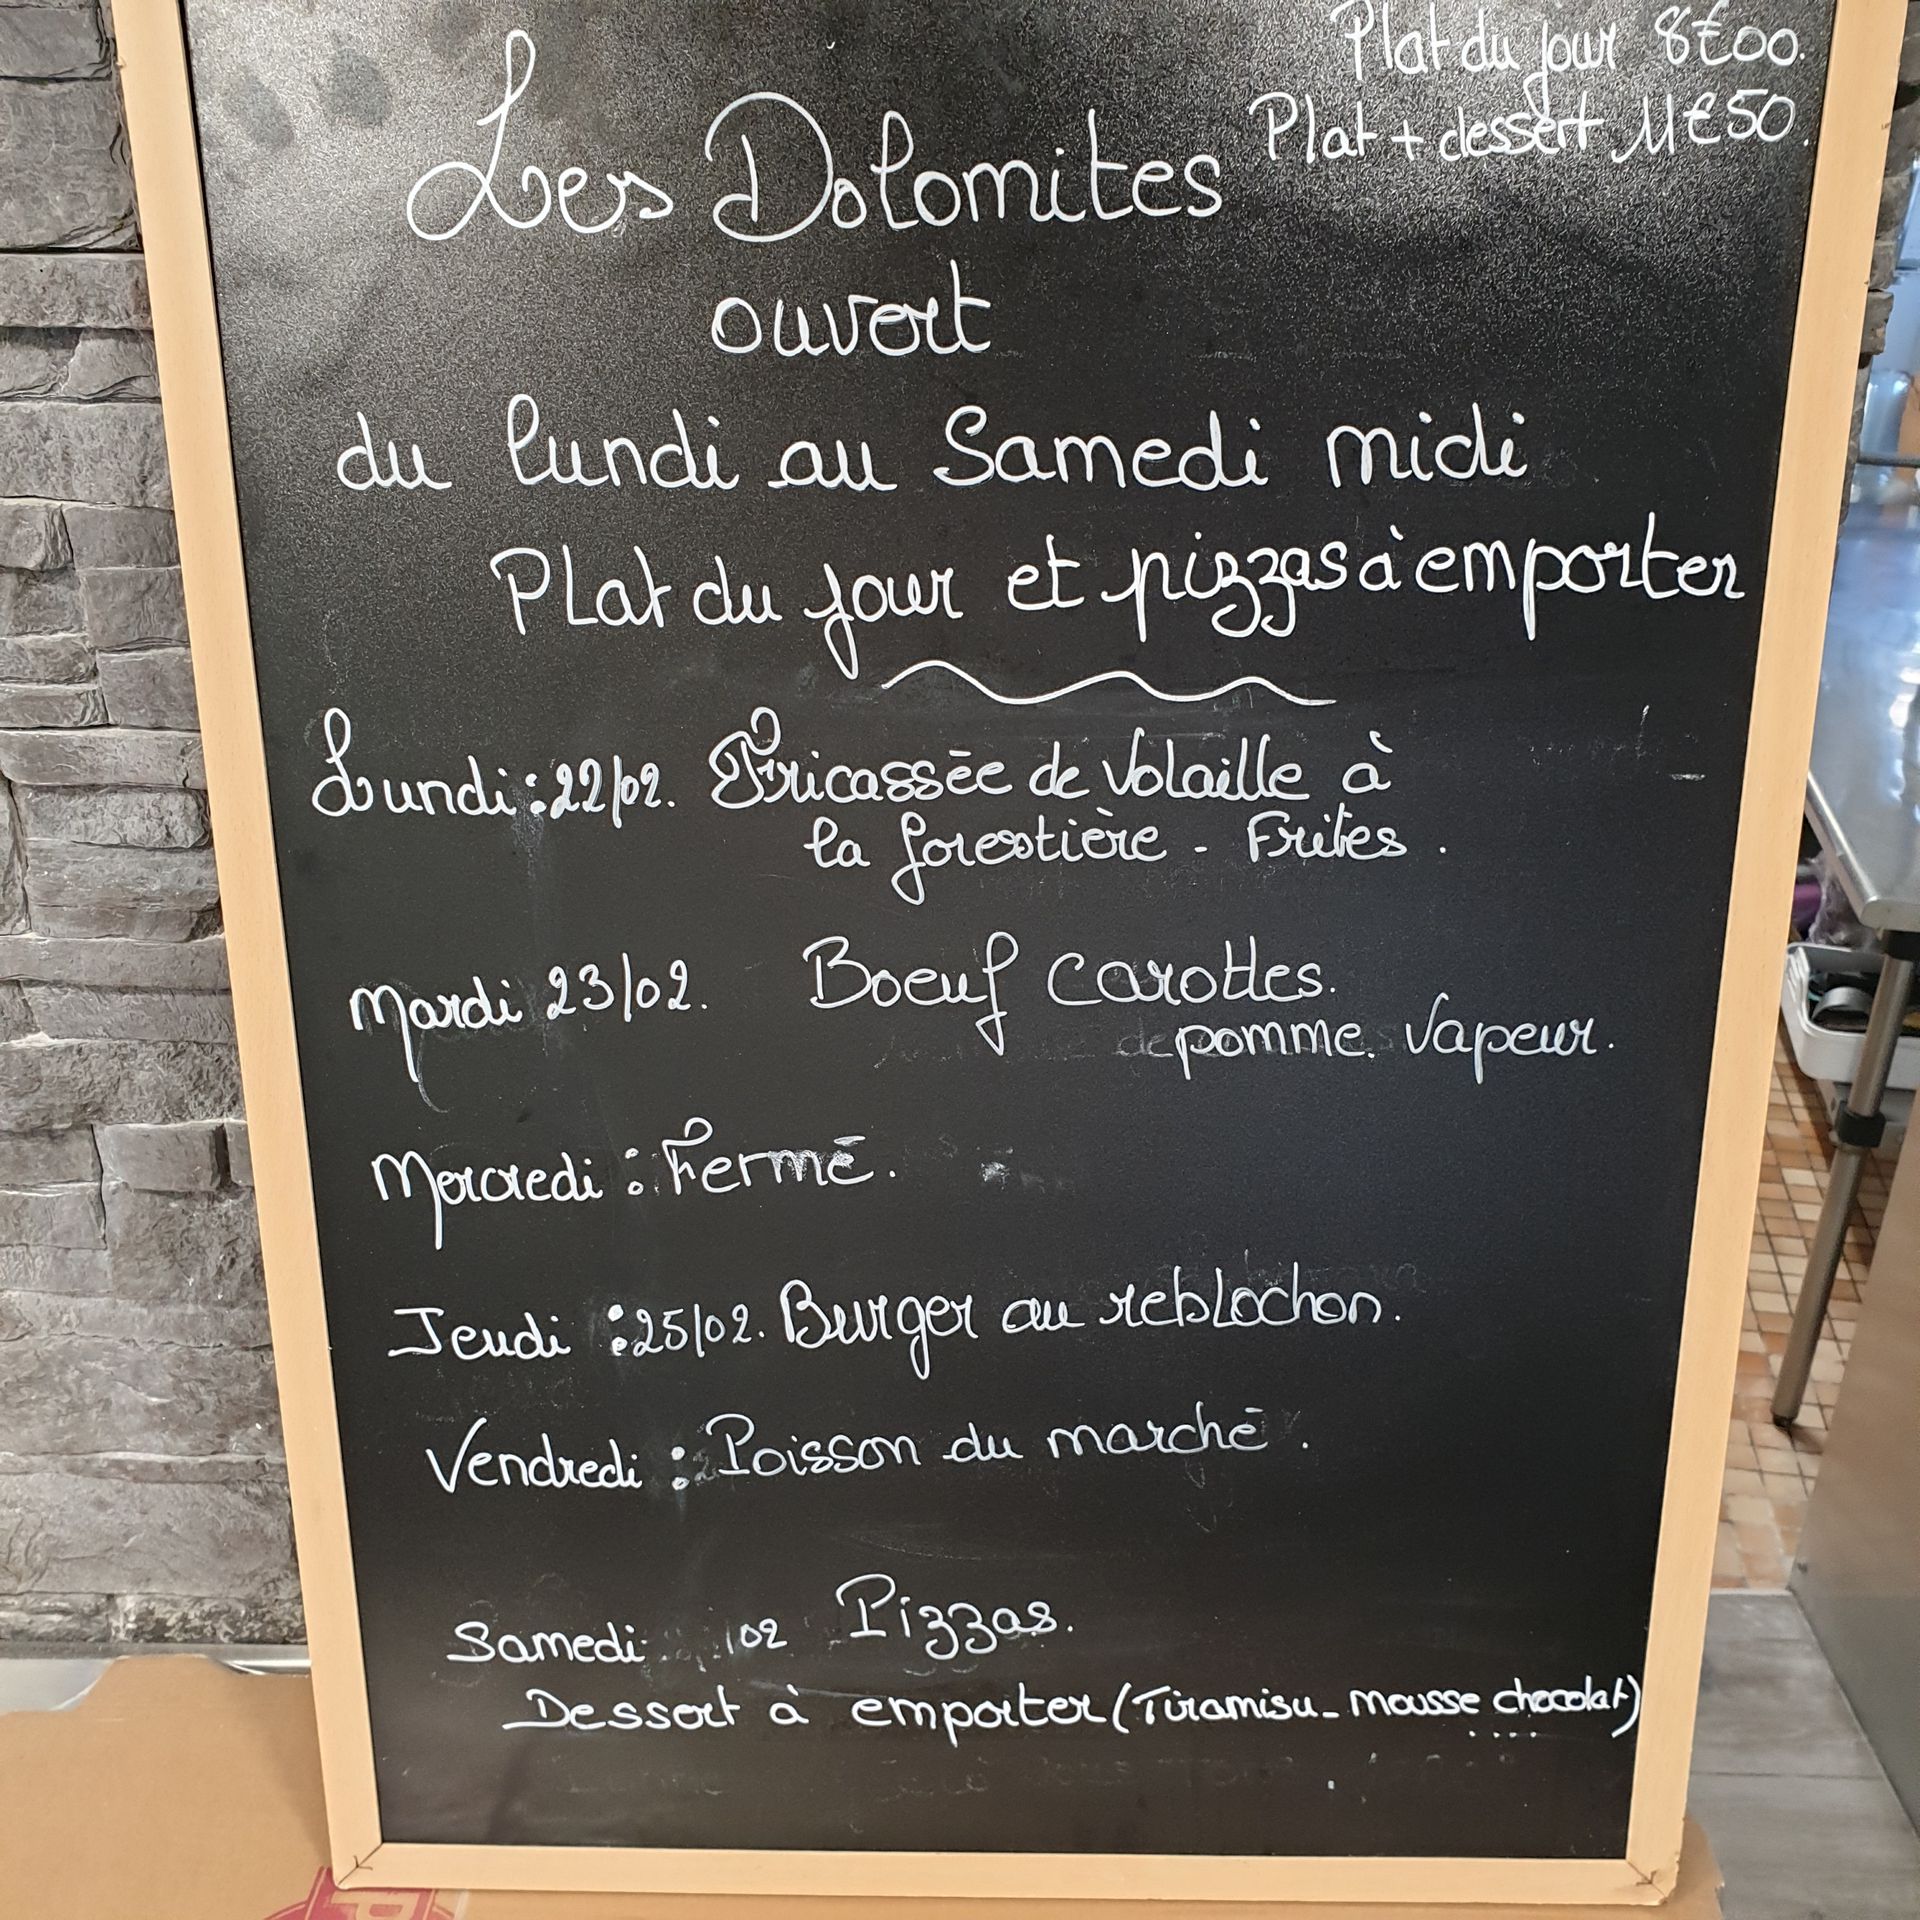 Plat du jour 8€00.
Plat + dessert 11€50.
Les Dolomites
ouvert
du lundi au Samedi midi
Plat du jour et pizzas à emporter
Lundi : 22/02. Fricassée de volaille à
la forestière - Frites.
Mardi 23/02. Boeuf carottes.
pomme. vapeur.
Mercredi : Fermé.
Jeudi : 25/02. Burger au reblochon.
Vendredi : Poisson du marché.
Samedi /02 Pizzas.
Dessert à emporter (Tiramisu - mousse chocolat)
....